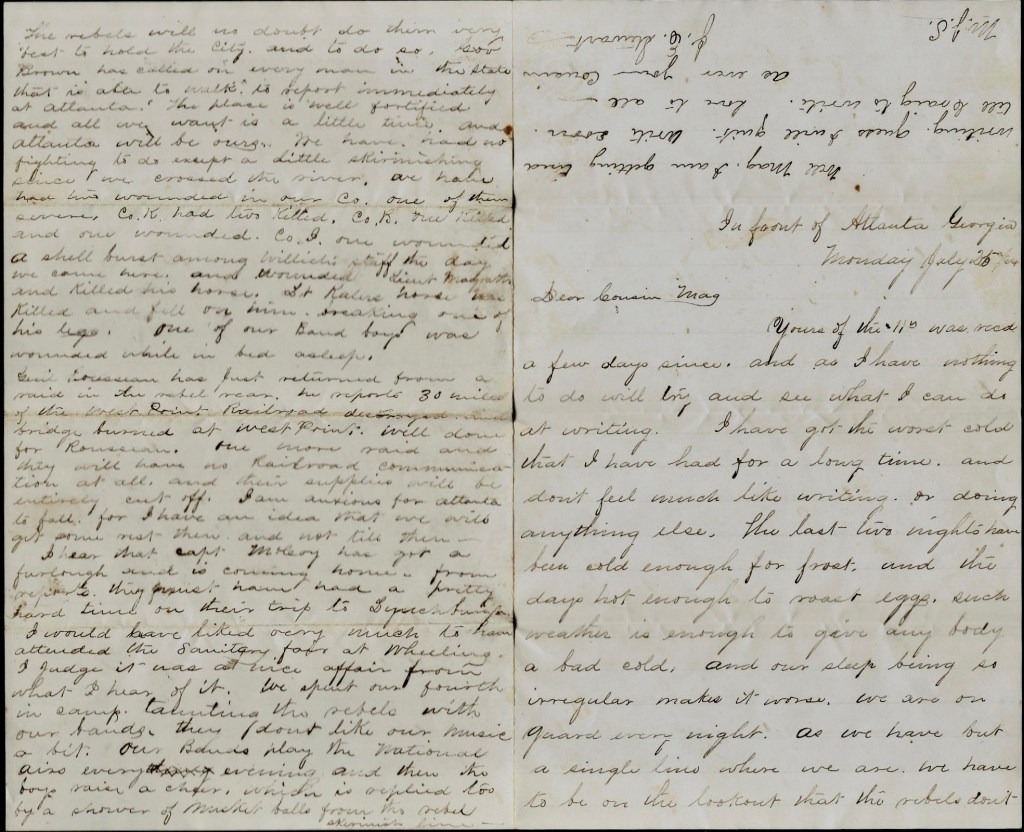 In front of Atlanta Georgia
Monday July 25th/64
Dear Cousin Mag
Yours of the 11th was recd
a few days since. and as I have nothing
to do will try and see what I can do
at writing. I have got the worst cold
that I have had for a long time. and
dont feel much like writing. or doing
anything else. The last two nights have
been cold enough for frost. and the
days hot enough to roast eggs. such
weather is enough to give any body
a bad cold. and our sleep being so
irregular makes it worse. we are on
guard every night. as we have but
a single line where we are. we have
to be on the lookout that the rebels dont
The rebels will no doubt do their very
best to hold the City. and to do so. Gov
Brown has called on every man in the state
that is able to walk. to report immediately
at Atlanta. The place is well fortified
and all we want is a little time. and
Atlanta will be ours. We have had no
fighting to do except a little skirmishing
since we crossed the river. we have
had two wounded in our Co. one of them
severe. Co. K. had two killed. Co. B. one killed
and one wounded. Co. I. one wounded
a shell burst among Willich's staff the day
we came here. and wounded Lieut
and killed his horse. Lt horse was
killed and fell on him. breaking one of
his legs. One of our Band boys was
wounded while in bed asleep.
Genl Rousseau has just returned from a
raid in the rebel rear. he reports 30 miles
of the West Point Railroad destroyed. and
bridge burned at West Point. well done
for Rousseau. One more raid and
they will have no Railroad communica-
tion at all. and their supplies will be
entirely cut off. I am anxious for Atlanta
to fall. for I have an idea that we will
get some rest then. and not till then —
I hear that Capt McElroy has got a
furlough and is coming home. from
reports. they must have had a pretty
hard time on their trip to Lynchburg
I would have liked very much to have
attended the Sanitary fair at Wheeling.
I judge it was a nice affair from
what I hear of it. We spent our fourth
in camp. taunting the rebels with
our bands. they dont like our music
a bit. Our Bands play the National
airs every evening and then the
boys raise a cheer. which is replied too
by a shower of musket balls from the rebel
skirmish line —
Well Mag. I am getting tired
writing. guess I will quit. Write soon.
tell Craig to write. love to all —
as ever your Cousin
J. C. Stewart
M. J. S.